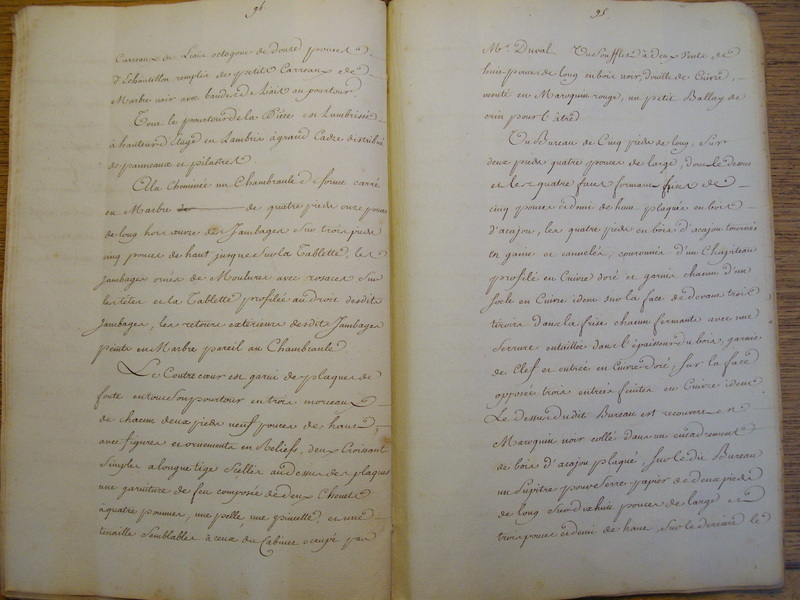 94
Carreaux de Liais octogone de douze pouces
d'Echantillon remplis de petits Carreaux de
Marbre noir avec bandes de Liais au pourtour
Tout le pourtour de la Piece est Lambrissé
à hauteur d'Etage en Lambris à grand Cadre distribué
de panneaux et pilastres
A la Cheminée un Chambranle de forme carré
en Marbre de quatre pieds onze pouces
de long hors œuvre des Jambages sur trois pieds
cinq pouces de haut jusques sur la Tablette, les
Jambages ornés de Moulures avec rosaces sur
les têtes et la Tablette profilée au droit desdits
Jambages, les retours exterieurs desdits Jambages
peints en Marbre pareil au Chambranle
Le Contrecœur est garni de plaques de
fonte en tout son pourtour en trois morceaux
de chacun deux pieds neuf pouces de haut,
avec figures et ornements en Reliefs, deux Croissants
simple à longue tige scellés au dessus des plaques
une garniture de feu composée de deux Chenets
à quatre pommes, une pelle une pincette, et une
tenaille semblables à ceux du Cabinet occupé par
95
Mr. Duval. Un soufflet à deux Vents de
huit pouces de long en bois noir, douille de Cuivre,
monté en Maroquin rouge, un petit Ballay de
crin pour l'âtre
Un Bureau de Cinq pieds de long, sur
deux pieds quatre pouces de large, dont le dessus
et les quatre faces formant frise de
cinq pouces et demi de haut plaquée en bois
d'acajou, les quatre pieds en bois d'acajou tournés
en gaine et cannelés, couronnés d'un Chapiteau
profilé en Cuivre doré et garnis chacun d'un
socle en Cuivre idem sur la face de devant trois
tiroirs dans la frise chacun fermants avec une
serrure entaillée dans l'épaisseur du bois, garnie
de Clef et entrée en Cuivre doré, sur la face
opposée trois entrées feintes en Cuivre idem
Le dessus dudit Bureau est recouvert en
Maroquin noir collé dans un encadrement
de bois d'acajou plaqué, sur ledit Bureau
un Pupitre pour serre papier de deux pieds
de long sur dix huit pouces de large et
trois pouces et demi de haut, sur le derriere le